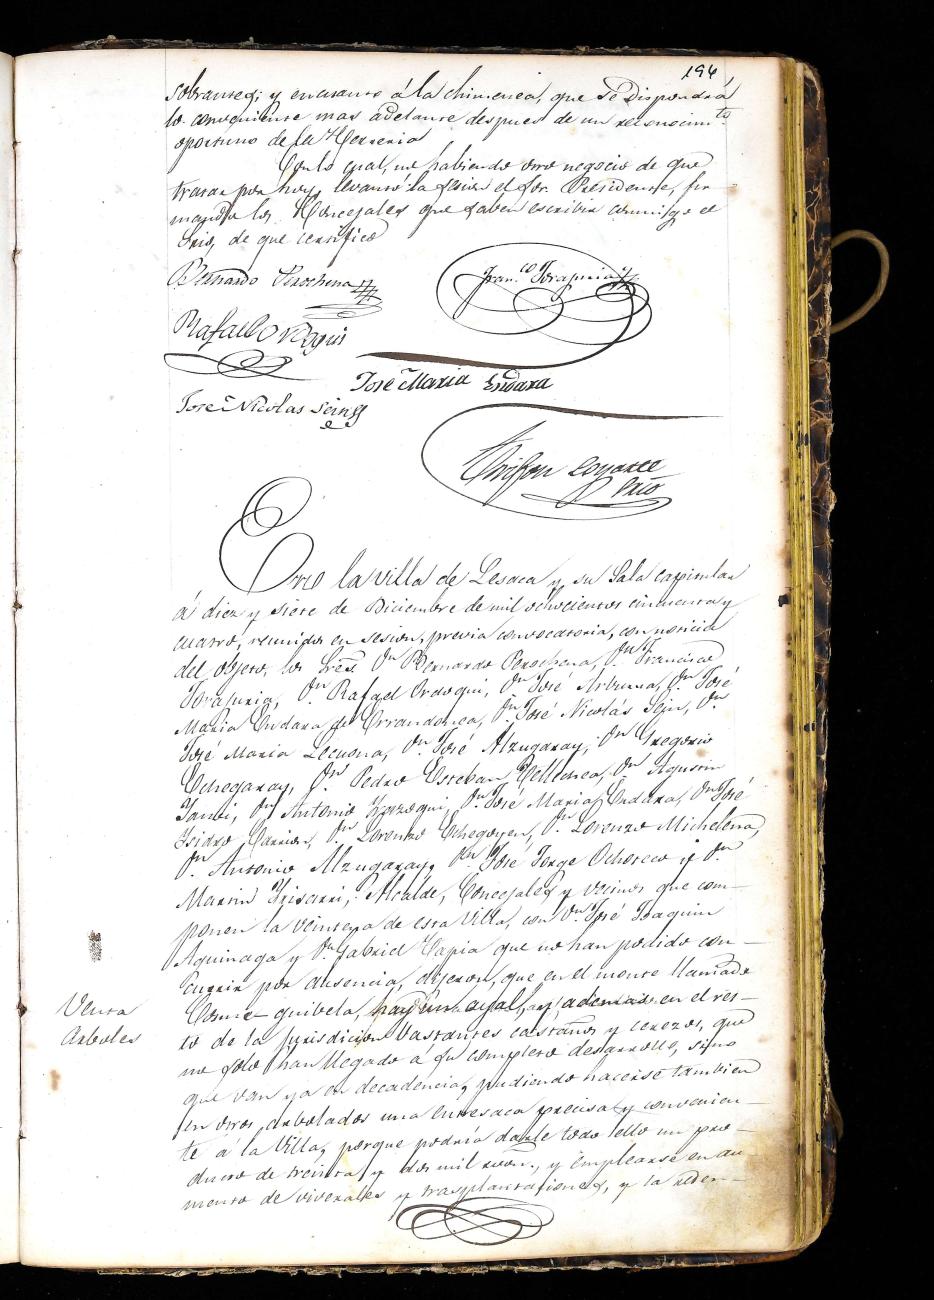 194
sobrantes; y en cuanto á la chimenea, que se dispondrá
lo conveniente mas adelante despues de un reconocimto.
oportuno de la Herreria
Con lo cual, no habiendo otro negocio de que
tratar por hoy, levantó la sesion el Sor. Presidente, fir-
mando los Concejales que saben escribir conmigo el
Srio, de que certifico
Bernardo Perochena
Franco. Torajuria
Rafael Ordoqui
José Maria Endara
José Nicolas Sein
Srio
En la villa de Lesaca y su Sala capitular
á diez y siete de Diciembre de mil ochocientos cincuenta y
cuatro, reunidos en sesion, previa convocatoria, con noticia
del objeto, los Sres. Dn. Bernardo Perochena, Dn. Francisco
Torajuria, Dn. Rafael Ordoqui, Dn. José Arburua, Dn. José
Maria Endara de Errandonea, Dn. José Nicolás Sein, Dn.
José Maria Lecuona, Dn. José Alzugaray, Dn. Gregorio
Echegaray, Dn. Pedro Esteban Tellechea, Dn. Agustin
Tanti, Dn. Antonio Dn. José Maria Endara, Dn. José
Isidro Carrion, Dn. Lorenzo Echegoyen, Dn. Lorenzo Michelena,
Dn. Antonio Alzugaray, Dn. José Jorge Ochoteco y Dn.
Martin Yrisarri, Alcalde, Concejales y vecinos que com-
ponen la veintena de esta Villa, con Dn. José Joaquin
Aguinaga y Dn. Gabriel Tapia que no han podido con-
currir por ausencia, dijeron, que en el monte llamado
Venta
Arboles
hay un ayal, y además en el res-
to de la jurisdicion bastantes castaños y cerezos, que
no solo han llegado á su completo desarrollo, sino
que van ya en decadencia, pudiendo hacerse tambien
en otros arbolados una entresaca precisa y convenien-
te á la Villa, porque podria darle todo ello un pro-
ducto de treinta y dos mil rvon., y emplearse en au-
mento de viverales y trasplantaciones, y la reden-